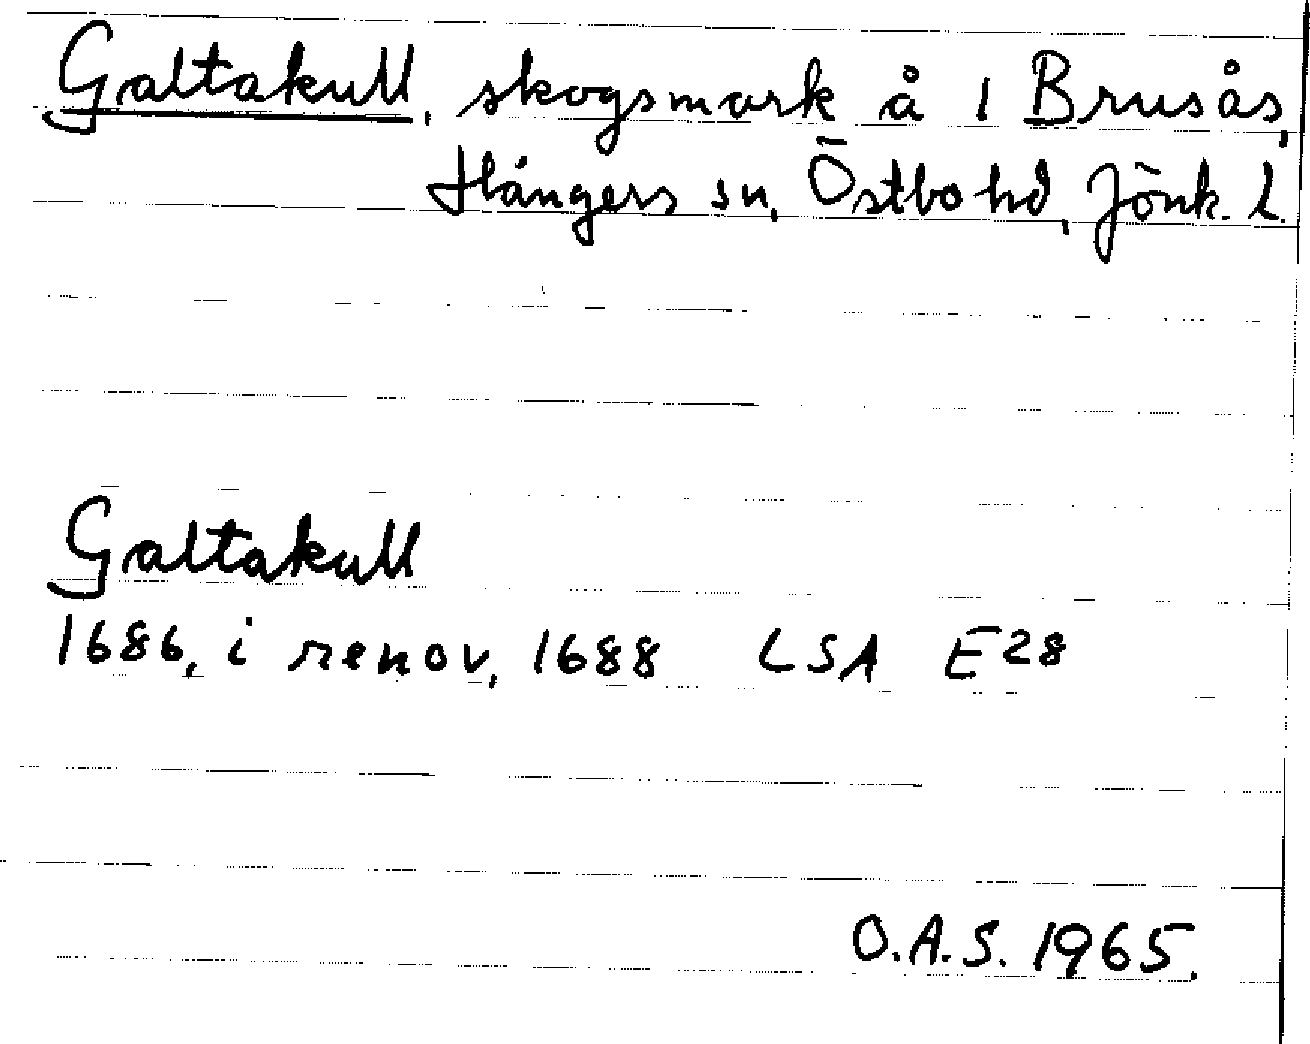 Galtakull, skogsmark å 1 Brusås,
Hångers sn, Östbo hd, Jönk. L.
Galtakull
1686, i renov, 1688 LSA E28
O.A.S. 1965.